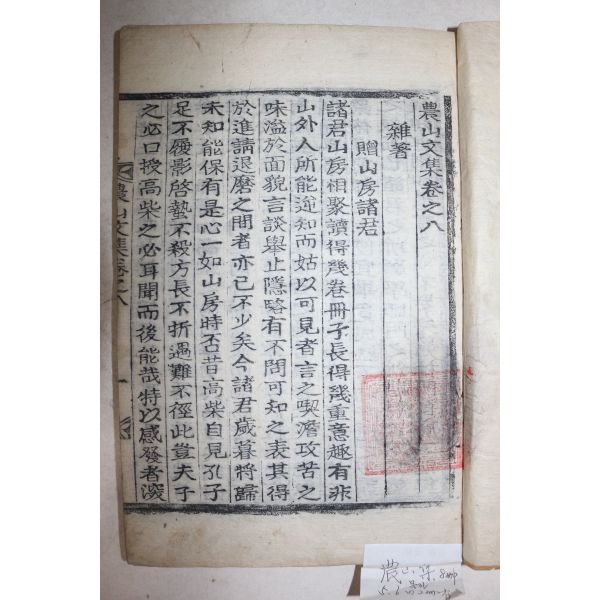 農山文集卷之八
雜著
贈山房諸君
諸君山房相聚讀得幾卷冊子長得幾重意趣有非
山外人所能逆知而姑以可見者言之喫澹攻苦之
味溢於面貌言談舉止隱略有不問可知之表其得
於進請退磨之間者亦已不少矣今諸君歲暮將歸
未知能保有是心一如山房時否昔高柴自見孔子
足不履影啓蟄不殺方長不折遇難不徑此豈夫子
之必口授高柴之必耳聞而後能哉特以感發者深
農山文集卷之八
一
農山集 8冊
5.6